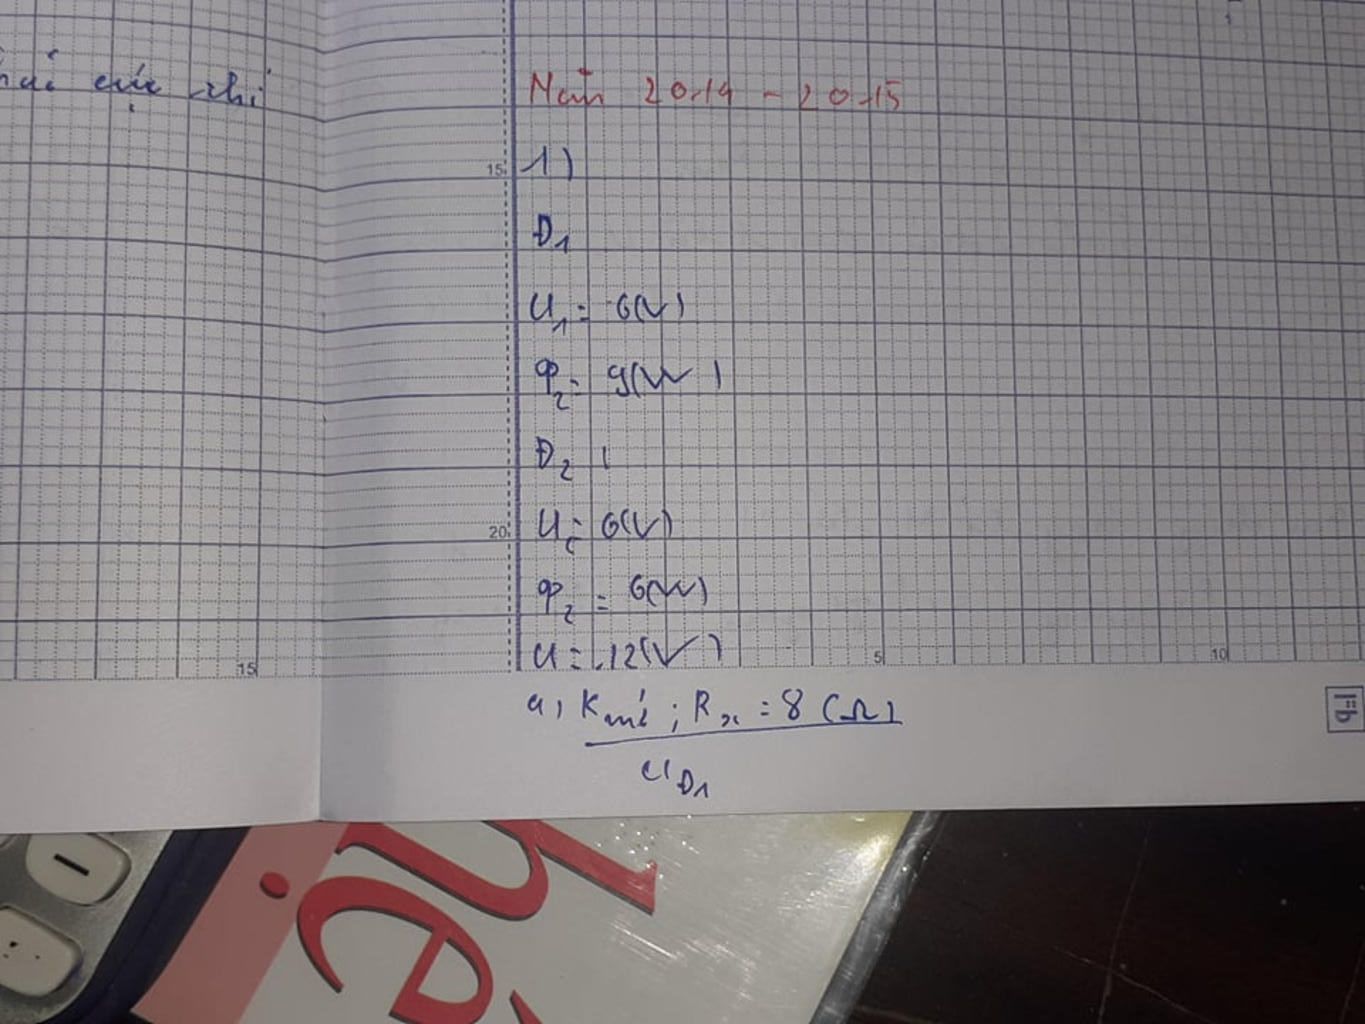 cực thì
Năm 2014 - 2015
15
1)
Đ1
U1 = 6(V)
P2 = 9(W)
Đ2
20
U2 = 6(V)
P2 = 6(W)
U = 12(V)
15
5
10
a, K mở ; Rx = 8 (Ω)
UĐ1